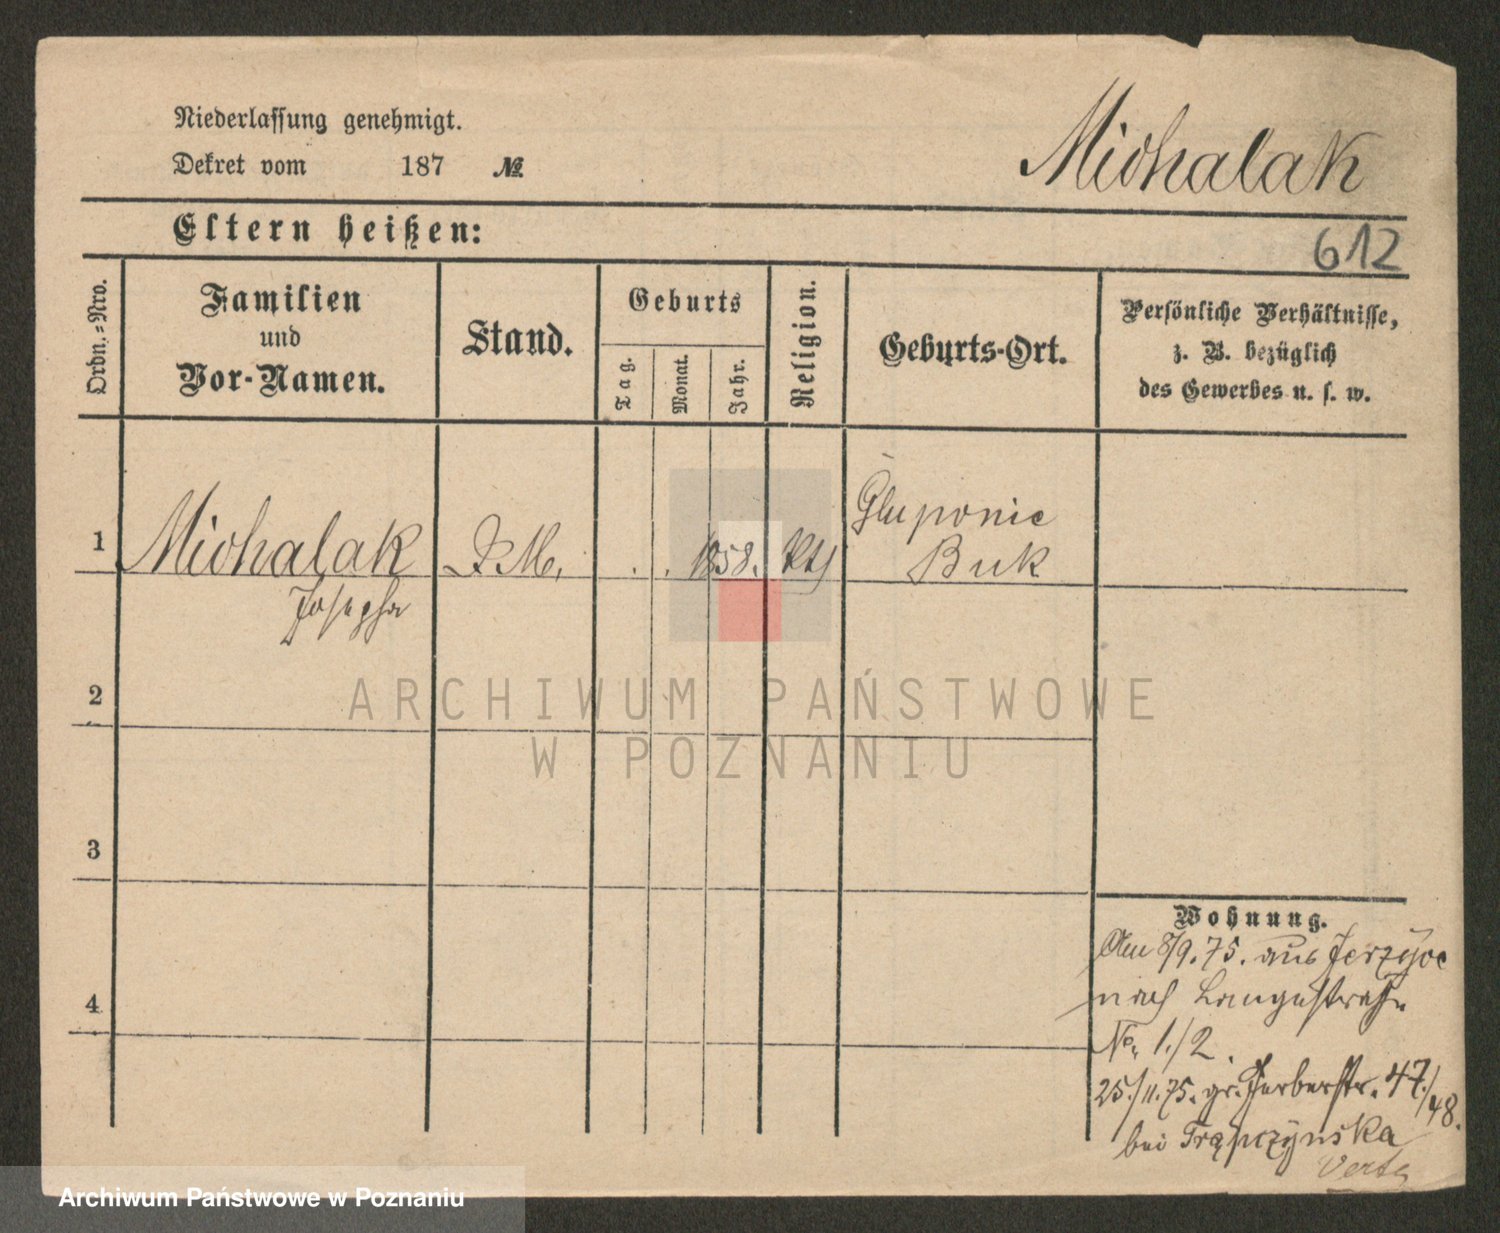 Niederlassung genehmigt.
Michalak
Dekret vom 187 №
Eltern heißen:
612
Ordn.=Nro.
Familien
und
Vor-Namen.
Stand.
Geburts
Tag.
Monat.
Jahr.
Religion.
Geburts-Ort.
Persönliche Verhältnisse,
z. B. bezüglich
des Gewerbes u. s. w.
1 Michalak D. M. . . 1858. kth Gluponie
Buk
Josepha
2
ARCHIWUM PAŃSTWOWE
W POZNANIU
3
4
Wohnung.
Am 8/9.75. aus Jerzyce
nach Langestraße
No. 1./2.
25./11.75. gr. Gerberstr. 47./48.
bei Trąpczynska
Verte
Archiwum Państwowe w Poznaniu